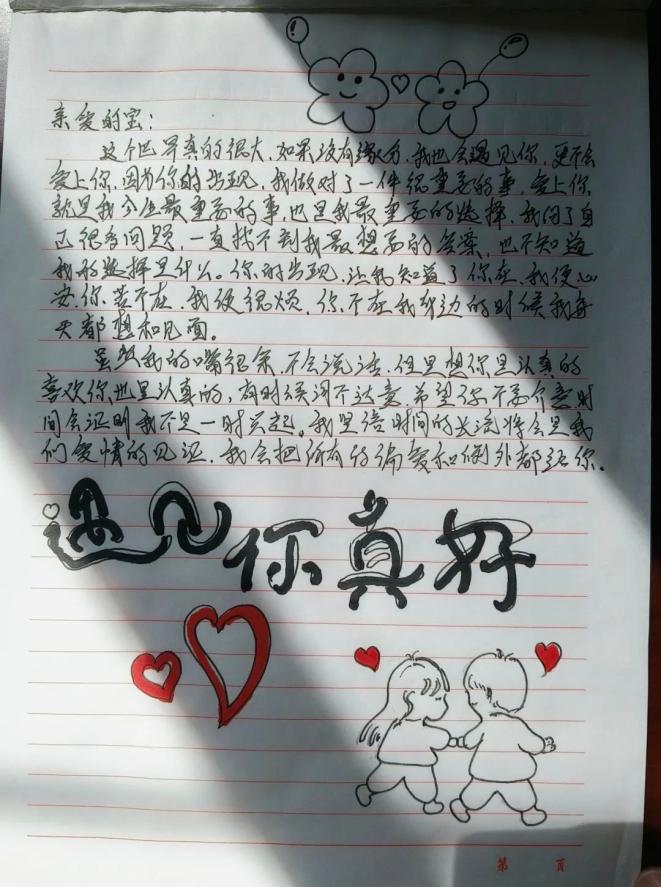 亲爱的宝:
这个世界真的很大,如果没有缘分,我也会遇见你,更不会
爱上你,因为你的出现,我做对了一件很重要的事,爱上你
就是我今生最重要的事,也是我最重要的选择,我问了自
己很多问题,一直找不到我最想要的答案,也不知道
我的选择是什么。你的出现,让我知道了你在,我便心
安,你若不在,我便很烦,你不在我身边的时候我每
天都想和见面。
虽然我的嘴很笨,不会说话,但是想你是认真的
喜欢你也是认真的,有时候词不达意,希望你不要介意,时
间会证明我不是一时兴起。我坚信时间的长流将会是我
们爱情的见证,我会把所有的偏爱和例外都给你。
遇见你真好
第 页